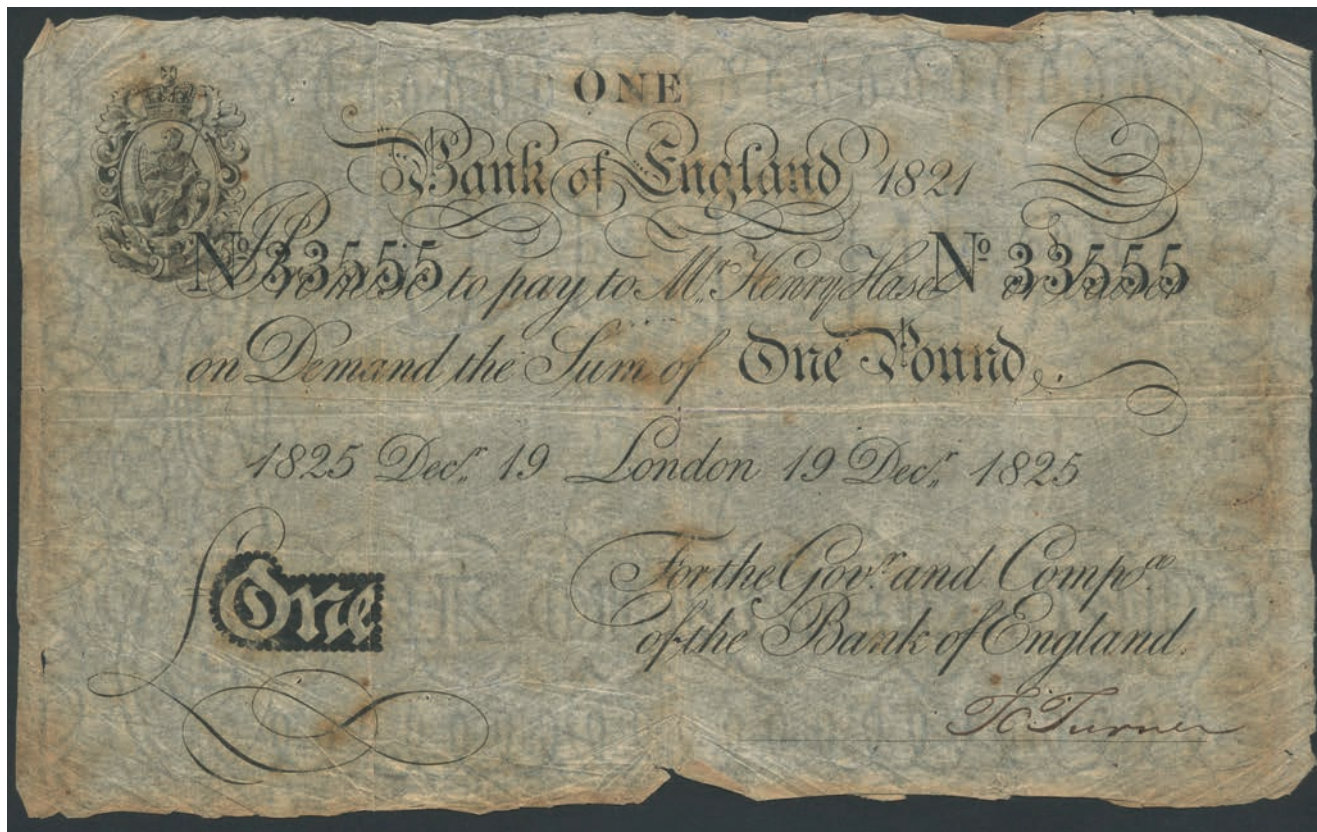 ONE
Bank of England 1821
Nº 33555 Nº 33555
Promise to pay to Mr. Henry Hase or Bearer
on Demand the Sum of One Pound
1825 Decr. 19 London 19 Decr. 1825
£One
For the Govr. and Compa.
of the Bank of England.
Turner